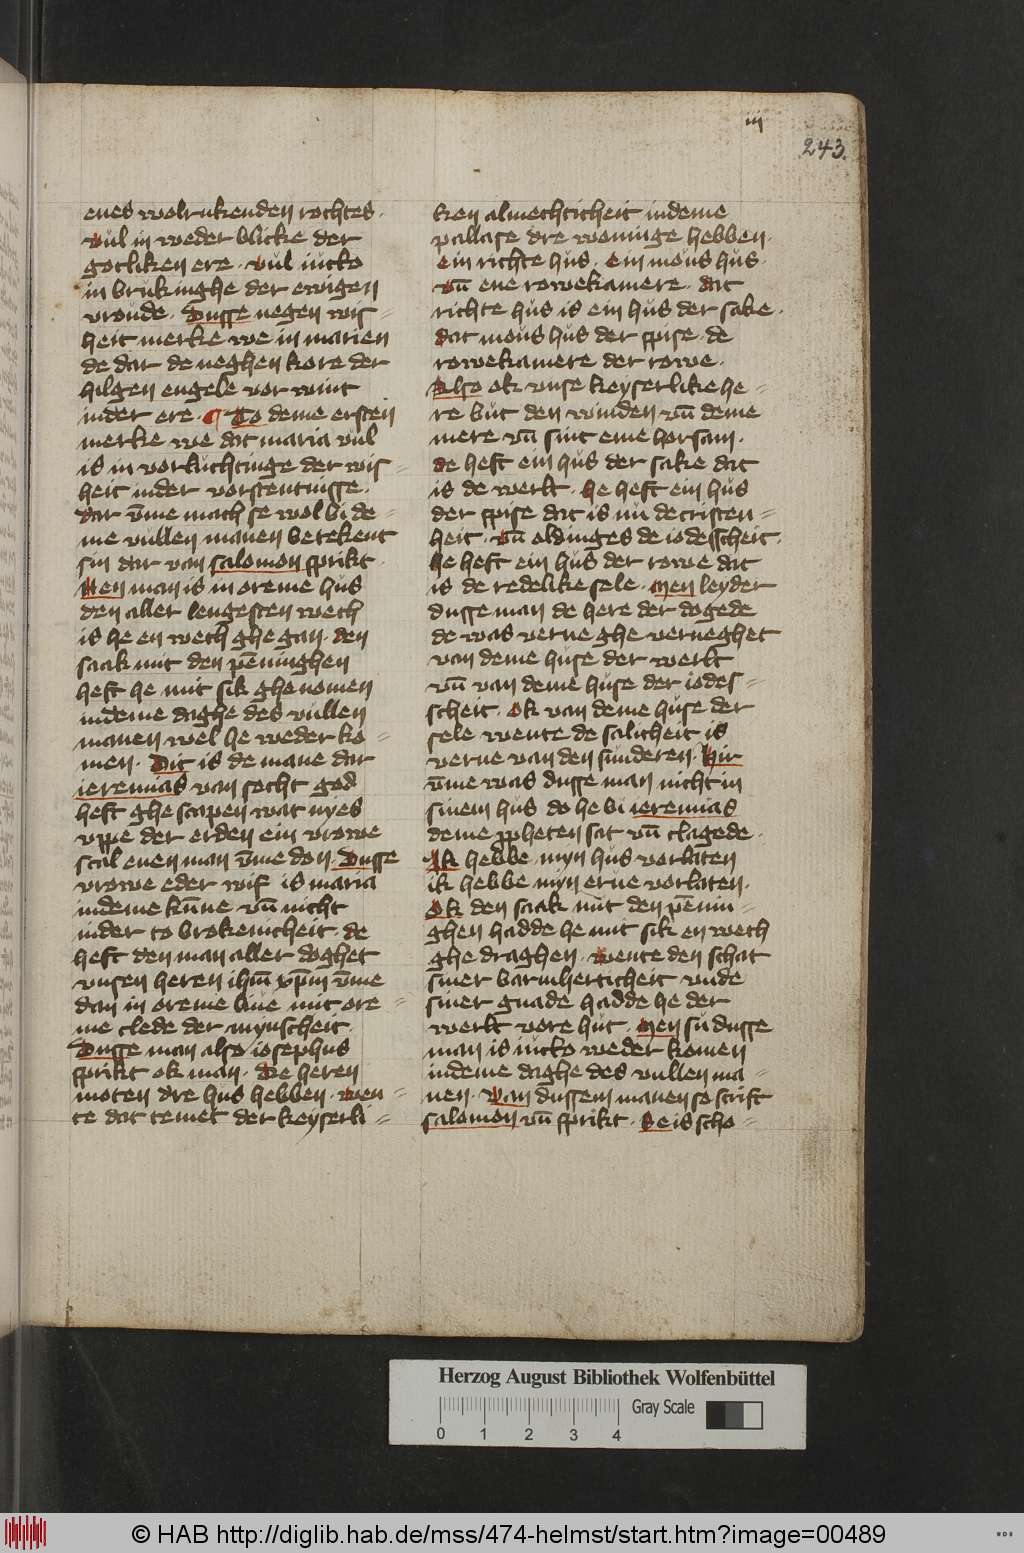 iij
243.
enes wolrukenden rochtes ·
vul in weder blicke der
gotliken ere · vul iucko
in brukinghe der ewigen
vroude · Dusse negen wis=
heit merke we in marien
de dar de neghen kore der
hilgen engele vor wint
inder ere · ¶ To deme ersten
merke we dat maria vul
is in vorluchtinge der wis=
heit inder vorstentnisse ·
dar v̄me mach se wol bi de=
me vullen manen betekent
sin dar van salomon sprikt ·
Men man is in oreme hus
den aller lengesten wech
is he en wech ghe gan · den
saak mit den pēninghen
heft he mit sik ghenomen
indeme daghe des vullen
manen wel he weder ko=
men · Dit is de mane dar
ieremias van secht god
heft ghe scapen wat nyes
vppe der erden ein vrowe
scal enen man v̄me don · Dusse
vrowe eder wif is maria
indeme kūne vn̄ nicht
inder to brokenicheit · de
heft den man aller doghet
vnsen heren ihm̄ xp̄m v̄me
dan in oreme liue mit ore=
me clede der mynscheit ·
Dusse man also iosephus
sprikt ok man · De heren
moten dre hus hebben · wen=
te dat temet der keyserli=
ken almechticheit indeme
pallase dre woninge hebben ·
ein richte hus · ein mous hus ·
vn̄ ene rowekamere · dat
richte hus is ein hus der sake ·
dat mous hus der spise · de
rowekamere der rowe ·
Also ok vnse keyserlike he=
re but den winden vn̄ deme
mere vn̄ sint eme horsam ·
de heft ein hus der sake dat
is de werlt · he heft ein hus
der spise dat is nu de cristen=
heit · vn̄ oldinges de iodesscheit ·
he heft ein hus der rowe dat
is de redelike sele · Men leyder
dusse man de here der dogede
de was verne ghe verneghet
van deme huse der werlt
vn̄ van deme huse der iodes=
scheit · ok van deme huse der
sele wente de salicheit is
verne van den sunderen · Hir
v̄me was dusse man nicht in
sinem hus do he bi ieremias
deme ppheten sat vn̄ clagede ·
Ik hebbe myn hus vorlaten
ik hebbe myn erue vorlaten ·
Ok den saak mit den pēnin=
ghen hadde he mit sik en wech
ghe draghen · wente den schat
siner barmherticheit vnde
siner gnade hadde he der
werlt vore hut · Men su dusse
man is iucko weder komen
indeme daghe des vullen ma=
nen · Van dussem manen so scrift
salomon vn̄ sprikt · Se is scho=
Herzog August Bibliothek Wolfenbüttel
Gray Scale
0 1 2 3 4
© HAB http://diglib.hab.de/mss/474-helmst/start.htm?image=00489